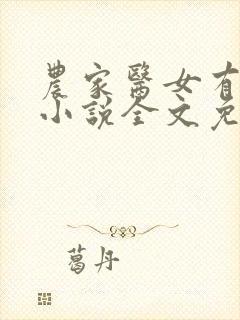 農家醫女有
小說全文免
葛丹